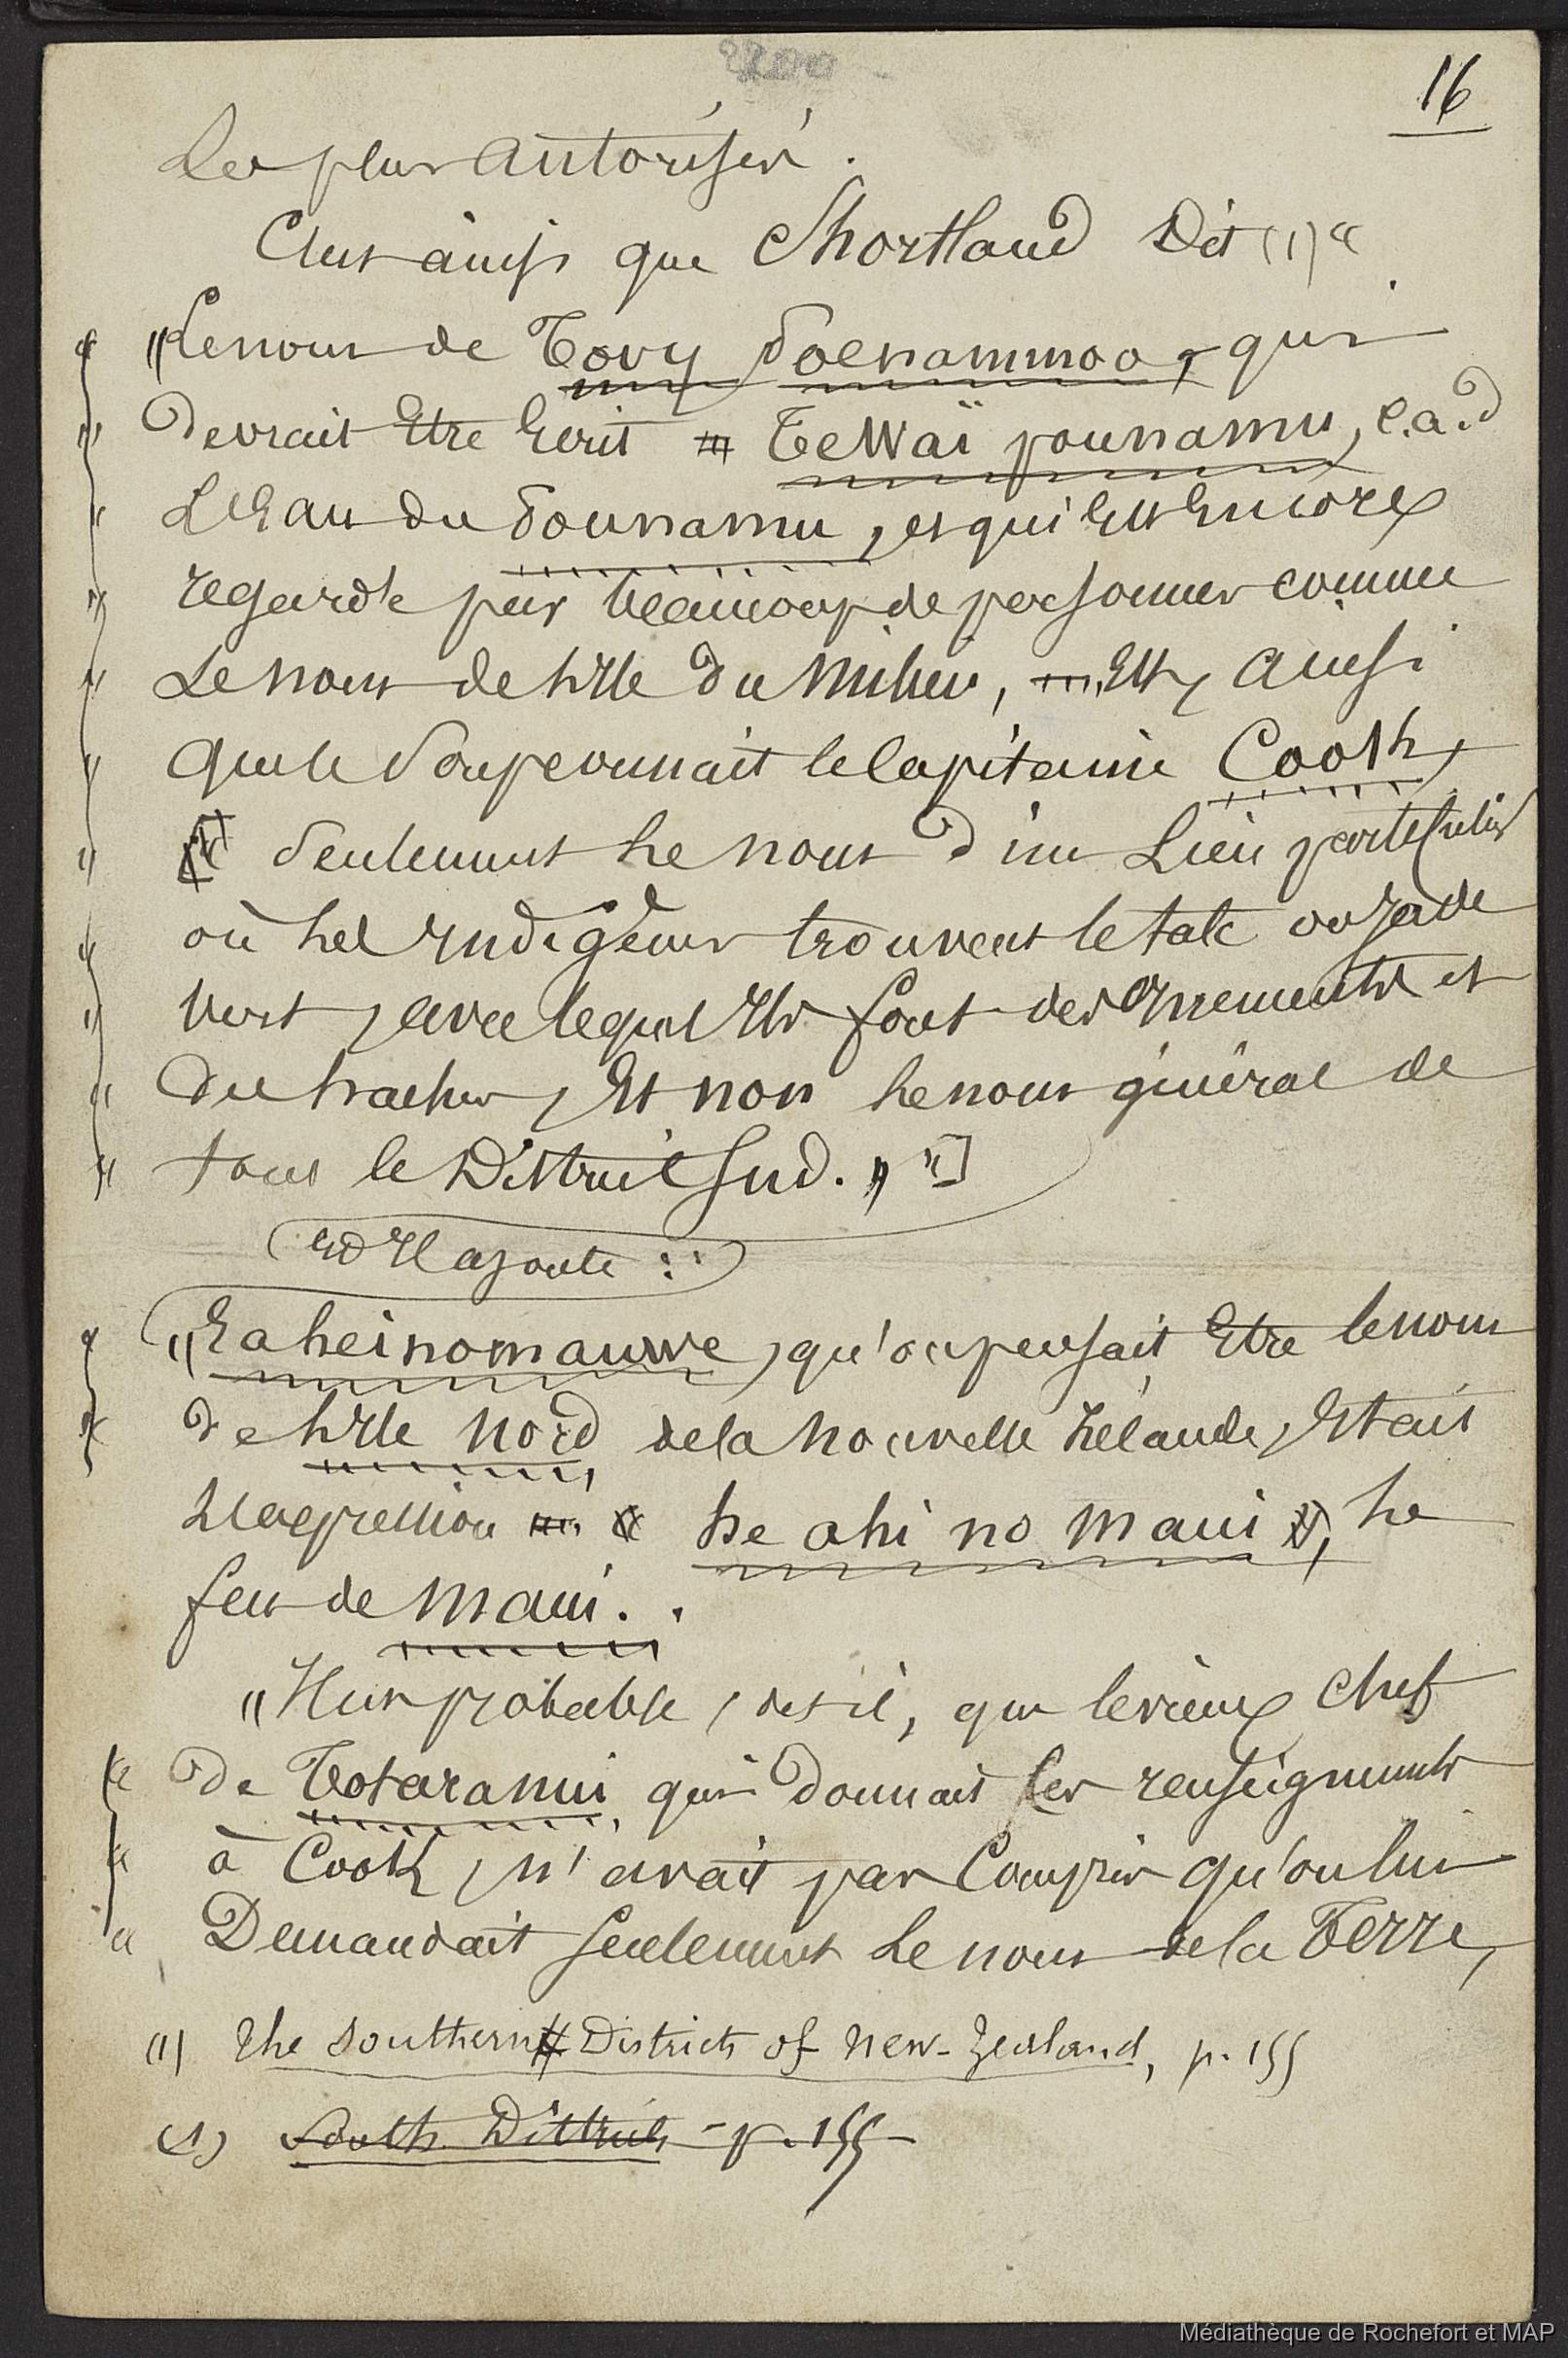 2200
16
les plus autorisés.
C'est ainsi que Shortland dit (1) "
"Le nom de Tovy Poenammoo, qui
devrait être écrit Te Waï pounamu, c.a.d
L'Eau du Pounamu, et qui est encore
regardé par beaucoup de personnes comme
Le nom de l'île du Milieu, est, ainsi
que le soupçonnait le capitaine Cook,
seulement le nom d'un Lieu particulier
où les indigènes trouvent le talc ou jade
vert, avec lequel ils font des ornements et
des haches, et non le nom général de
tout le District Sud. " "]
Et il ajoute :
"Eaheinomauwe, qu'on pensait être le nom
de l'île Nord de la Nouvelle Zélande, était
l'expression he ahi no Maui, le
feu de Maui.
"Il est probable, dit-il, que le vieux chef
" de Totaranui qui donnait les renseignements
" à Cook, n'avait pas compris qu'on lui
" Demandait seulement le nom de la Terre,
(1) The Southern Districts of New-Zealand, p. 155
(1) South. Districts - p. 155
Médiathèque de Rochefort et MAP